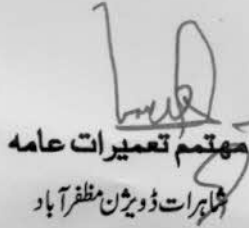 مہتمم تعمیرات عامہ
شاہرات ڈویژن مظفرآباد